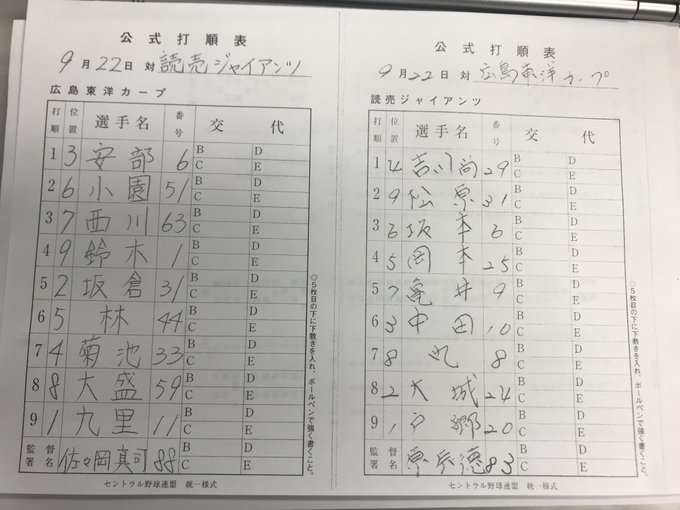 公式打順表
9月22日 対 読売ジャイアンツ
広島東洋カープ
打順 位置 選手名 番号 交代
1 3 安部 6 B D C E
2 6 小園 51 B D C E
3 7 西川 63 B D C E
4 9 鈴木 1 B D C E
5 2 坂倉 31 B D C E
6 5 林 44 B D C E
7 4 菊池 33 B D C E
8 8 大盛 59 B D C E
9 1 九里 11 B D C E
監督署名 佐々岡真司 88 B D C E
セントラル野球連盟 統一様式
公式打順表
9月22日 対 広島東洋カープ
読売ジャイアンツ
打順 位置 選手名 番号 交代
1 4 吉川尚 29 B D C E
2 9 松原 31 B D C E
3 6 坂本 6 B D C E
4 5 岡本 25 B D C E
5 7 亀井 9 B D C E
6 3 中田 10 B D C E
7 8 丸 8 B D C E
8 2 大城 24 B D C E
9 1 戸郷 20 B D C E
監督署名 原辰徳 83 B D C E
セントラル野球連盟 統一様式
◎5枚目の下に下敷きを入れ、ボールペンで強く書くこと。
◎5枚目の下に下敷きを入れ、ボールペンで強く書くこと。